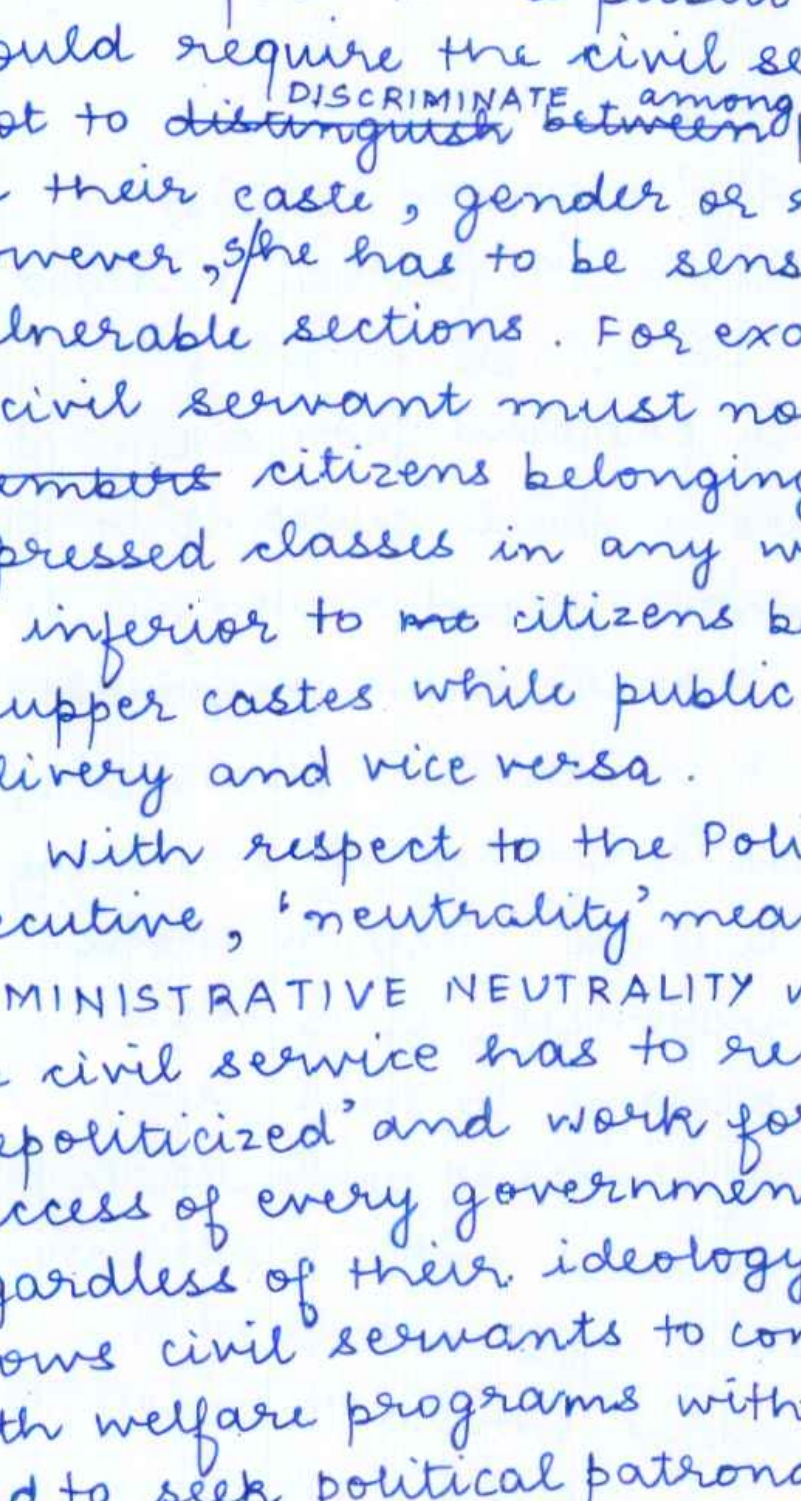 ould require the civil se
DISCRIMINATE among
ot to ~~distinguish~~ ~~between~~ p
their caste, gender or s
wever, s/he has to be sens
lnerable sections. For exa
civil servant must no
~~embers~~ citizens belonging
pressed classes in any w
inferior to citizens b
upper castes while public
livery and vice versa.
With respect to the Poli
ecutive, 'neutrality' mea
MINISTRATIVE NEUTRALITY w
civil service has to re
epoliticized' and work for
ccess of every governmen
gardless of their ideology
ows civil servants to con
th welfare programs with
d to seek political patrona